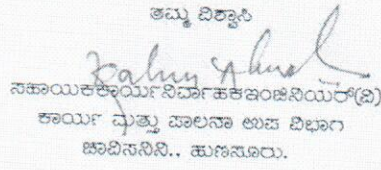 ತಮ್ಮ ವಿಶ್ವಾಸಿ
ಸಹಾಯಕಕಾರ್ಯನಿರ್ವಾಹಕಇಂಜಿನಿಯರ್(ವಿ)
ಕಾರ್ಯ ಮತ್ತು ಪಾಲನಾ ಉಪ ವಿಭಾಗ
ಚಾವಿಸನಿನಿ.. ಹುಣಸೂರು.